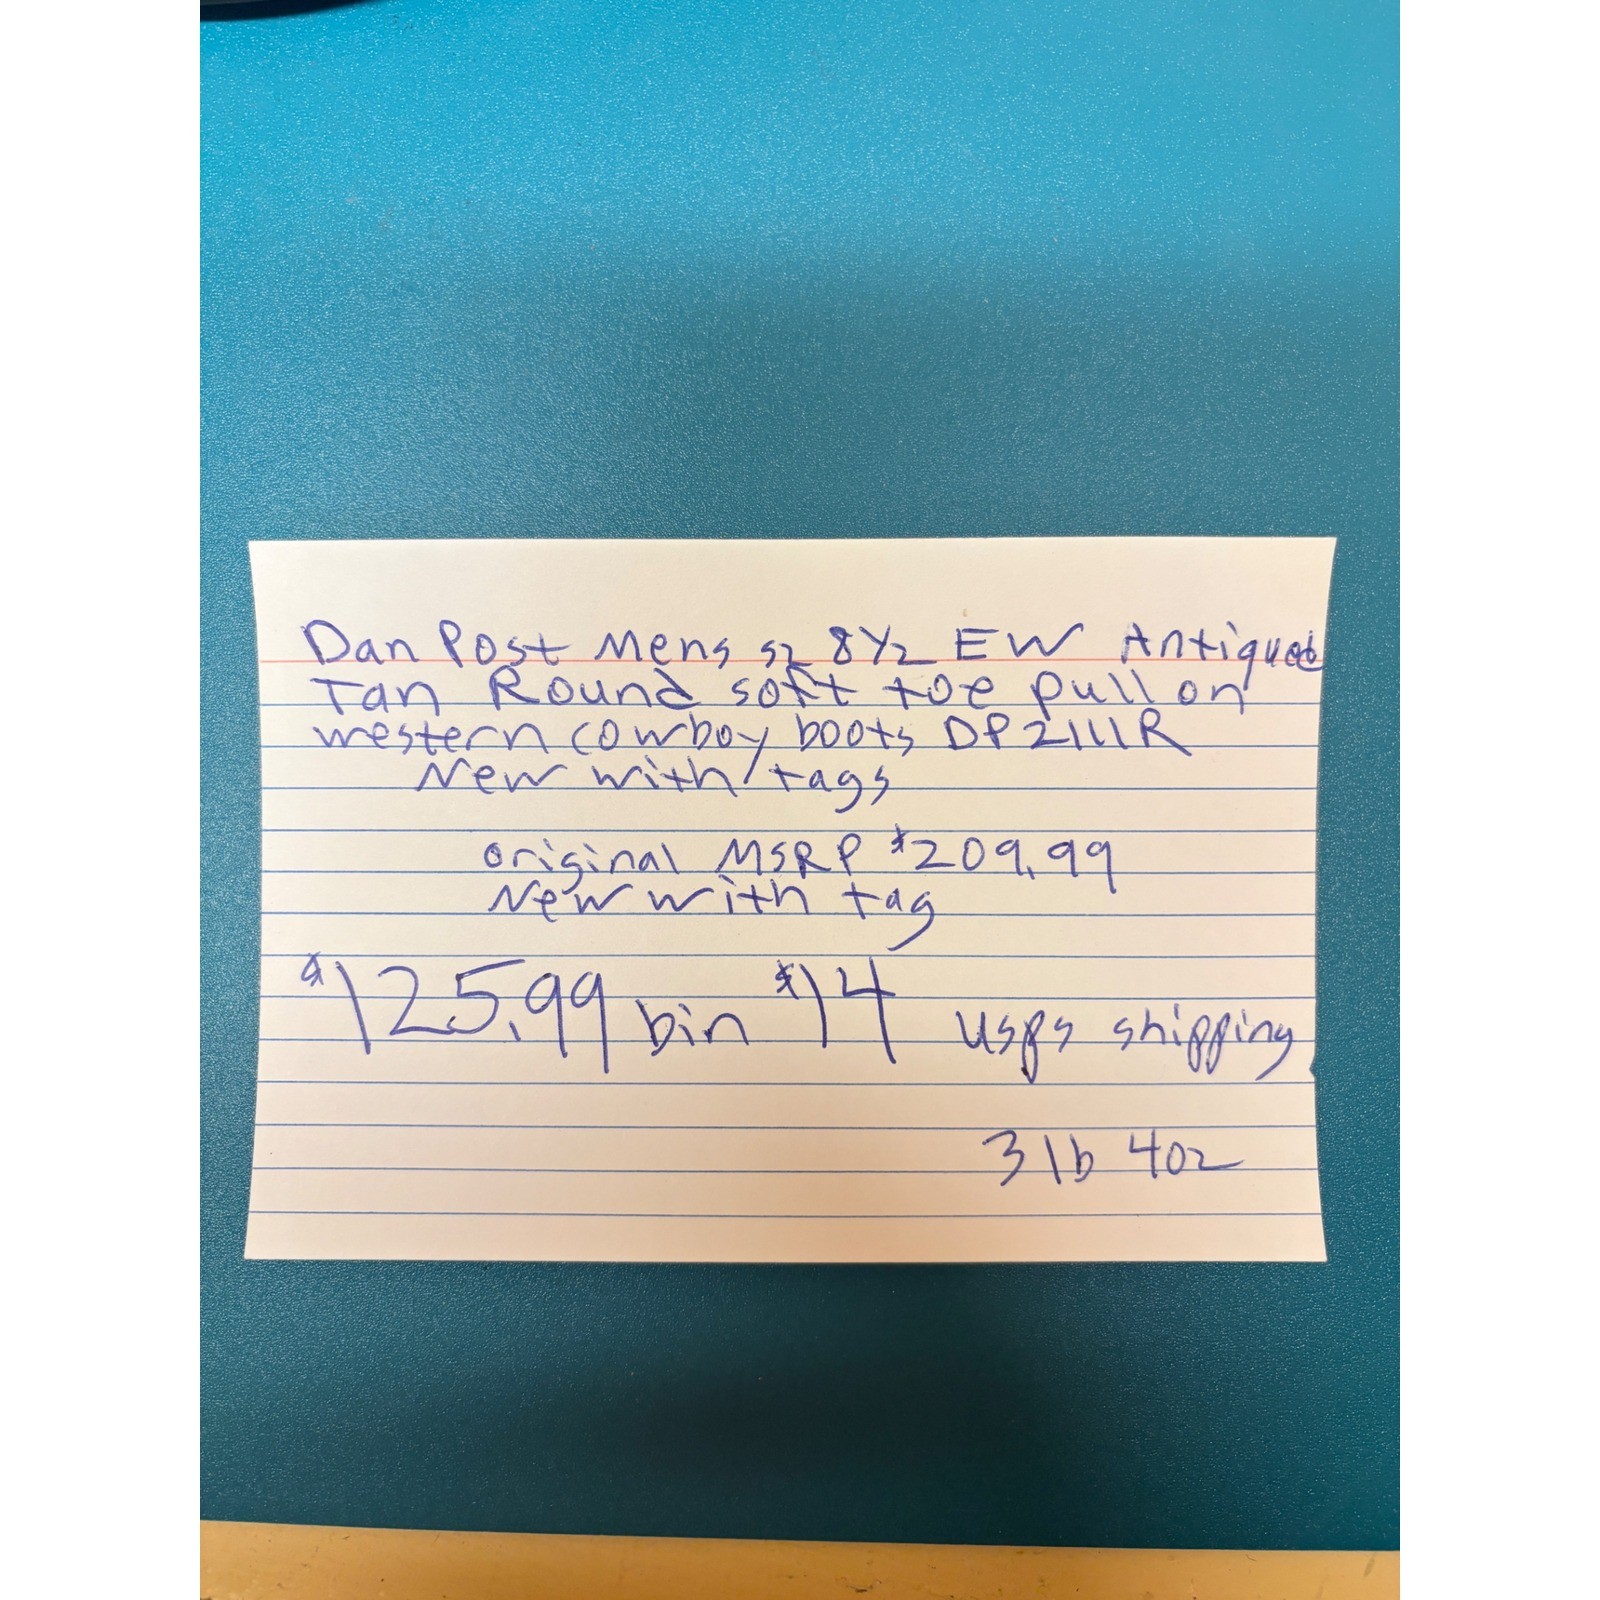 Dan Post Mens sz 8 1/2 EW Antiqued
Tan Round soft toe pull on
western cowboy boots DP2111R
New with tags
original MSRP $209.99
New with tag
$125.99 bin $14 usps shipping
3 lb 4oz